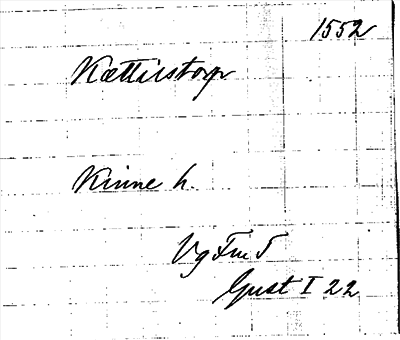 1552
Kættilstorp
Kinne h.
Vg Fm 5
Gust I 22